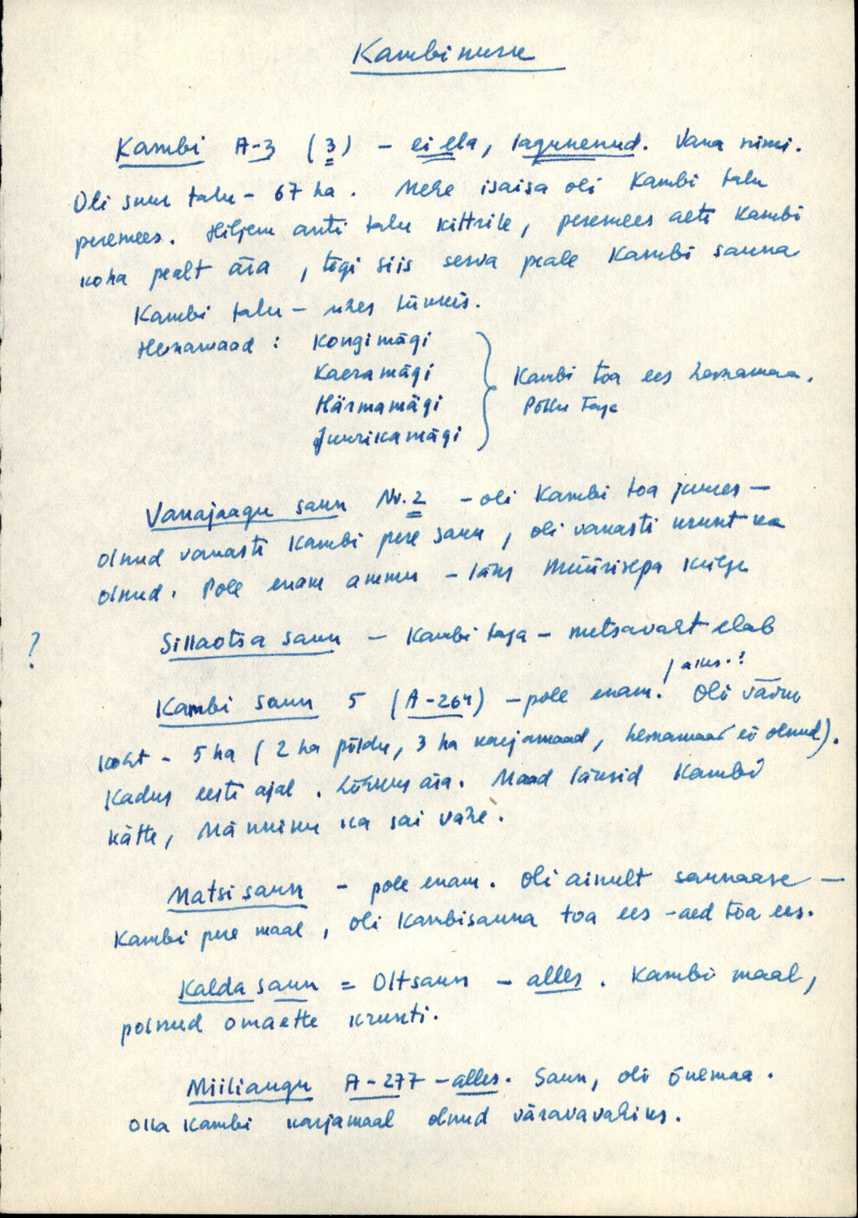 Kambi nurk
Kambi A-3 (3) - ei ela, lagunenud. Vana nimi.
Oli suur talu - 67 ha. Mehe isaisa oli Kambi talu
peremees. Hiljem anti talu kittrile, peremees aeti Kambi
koha pealt ära, tegi siis serva peale Kambi sauna
Kambi talu - ühes tükkis.
Heinamaad: Kongimägi
Kaeramägi
Härmamägi
Juurikamägi
Kambi toa ees heinamaa.
Põllu taga
Vanajaagu saun Nr. 2 - oli Kambi toa juures -
olnud vanasti Kambi pere saun, oli vanasti krunt ka
olnud. Pole enam ammu - läks Müürisepa külge
? Sillaotsa saun - Kambi taga - metsavaht elab
Kambi saun 5 (A-264) - pole enam. Oli väike
koht - 5 ha (2 ha põldu, 3 ha karjamaad, heinamaad ei olnud).
Kadus eesti ajal. Lõhkus ära. Maad läksid Kambi
kätte, Männiku ka sai vähe.
Matsi saun - pole enam. Oli ainult saunaase -
Kambi pere maal, oli Kambisauna toa ees - aed toa ees.
Kalda saun = Oltsaun - alles. Kambi maal,
polnud omaette krunti.
Miiliangu A-277 - alles. Saun, oli õuemaa.
Olla Kambi karjamaal olnud väravavahiks.